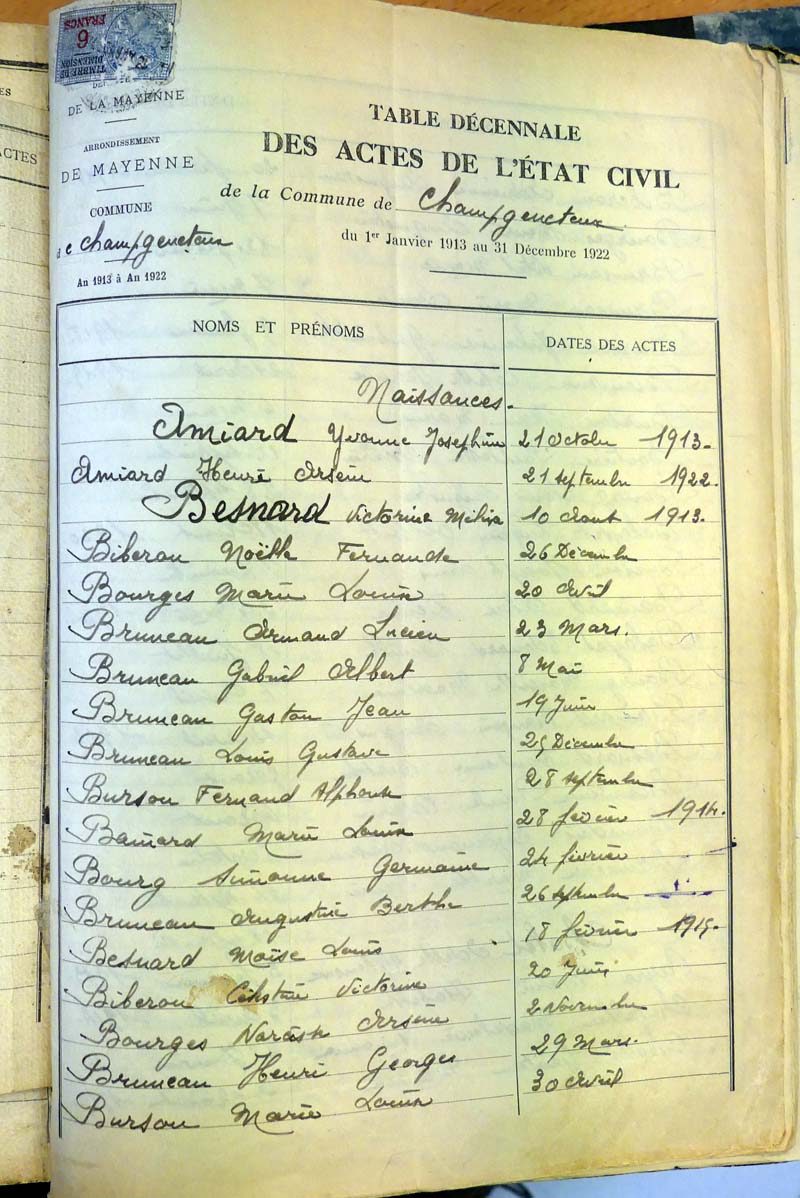 ES
ACTES
TIMBRE DE
DIMENSION
6
FRANCS
DE LA MAYENNE
ARRONDISSEMENT
DE MAYENNE
COMMUNE
de Champgeneteux
An 1913 à An 1922
TABLE DÉCENNALE
DES ACTES DE L'ÉTAT CIVIL
de la Commune de Champgeneteux
du 1er Janvier 1913 au 31 Décembre 1922
NOMS ET PRÉNOMS DATES DES ACTES
Naissances.
Amiard Yvonne Joséphine 21 octobre 1913.
Amiard Henri Arsène 21 septembre 1922.
Besnard Victorine 10 Aout 1913.
Biberon Noëlle Fernande 26 Décembre
Bourges Marie Louise 20 Avril
Bruneau Armand Lucien 23 Mars.
Bruneau Gabriel Albert 8 Mai
Bruneau Gaston Jean 19 Juin
Bruneau Louis Gustave 25 Décembre
Burson Fernand Alphonse 28 septembre
Bainard Marie Louise 28 février 1914.
Bourg Simonne Germaine 24 février
Bruneau Augustine Berthe 26 septembre
Besnard Moïse Louis 18 février 1915.
Biberon Célestine Victorine 20 Juin
Bourges Narcisse Arsène 2 Novembre
Bruneau Henri Georges 29 Mars.
Burson Marie Louise 30 Avril